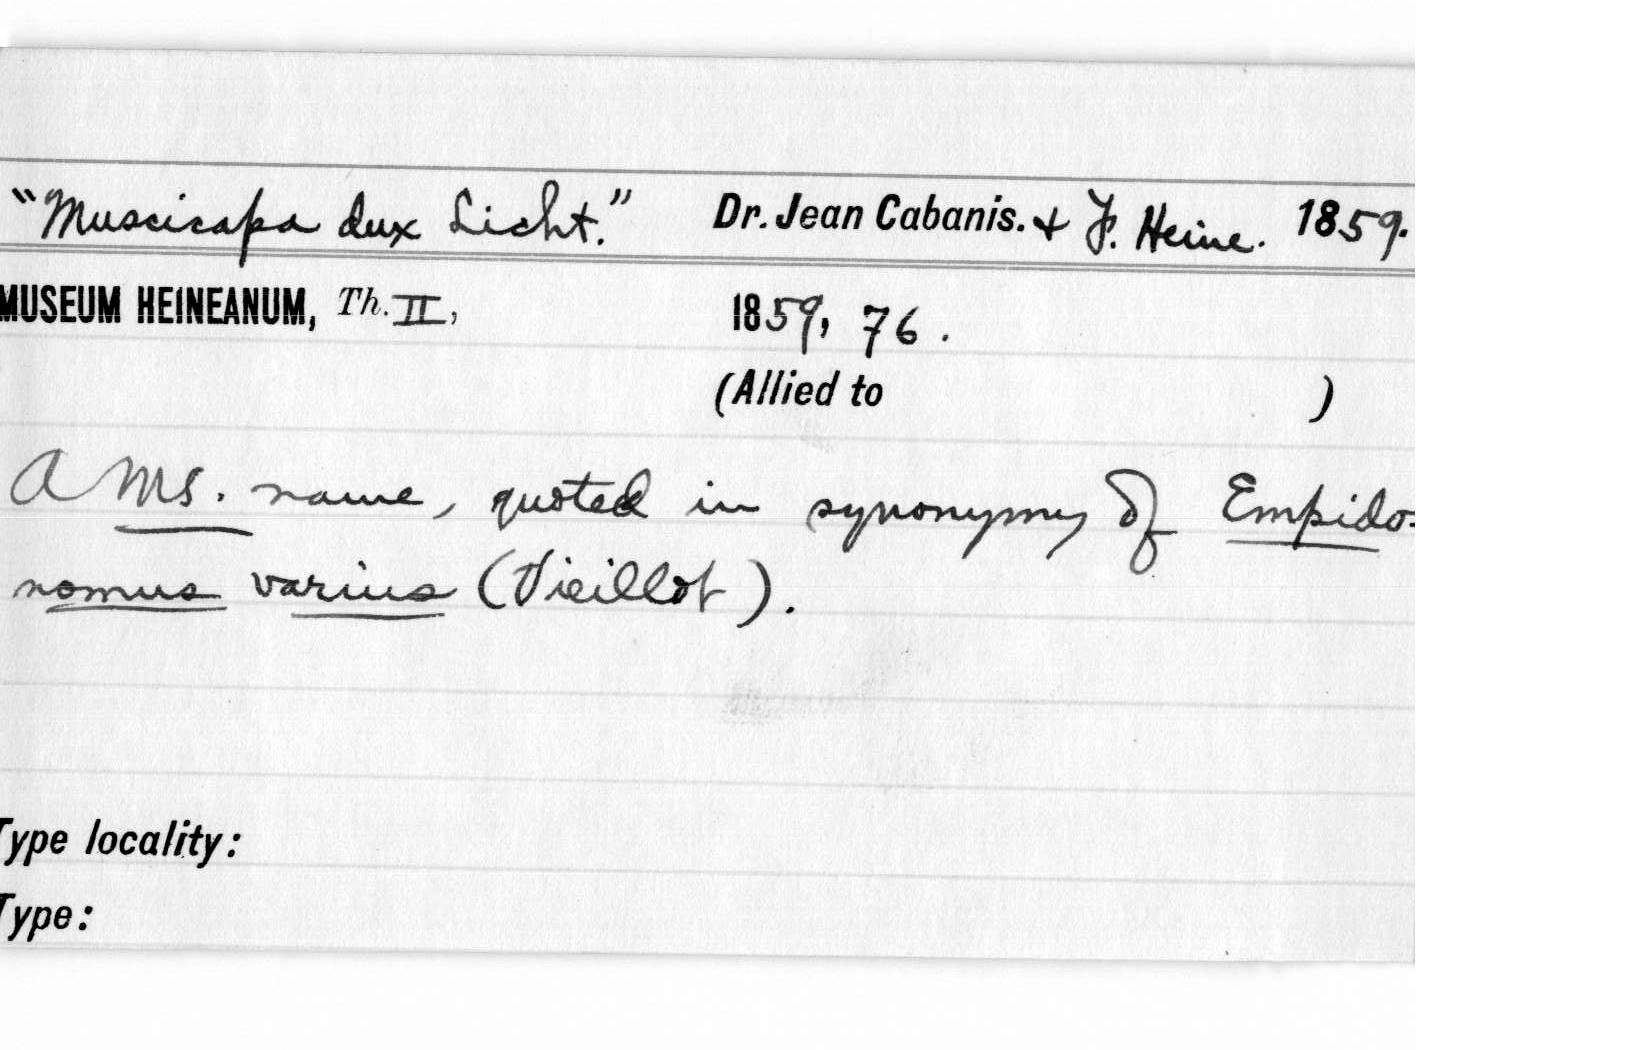 "Muscicapa dux Licht." Dr. Jean Cabanis. & F. Heine. 1859.
MUSEUM HEINEANUM, Th. II, 1859, 76.
(Allied to )
A MS. name, quoted in synonymy of Empido-
nomus varius (Vieillot).
Type locality:
Type: